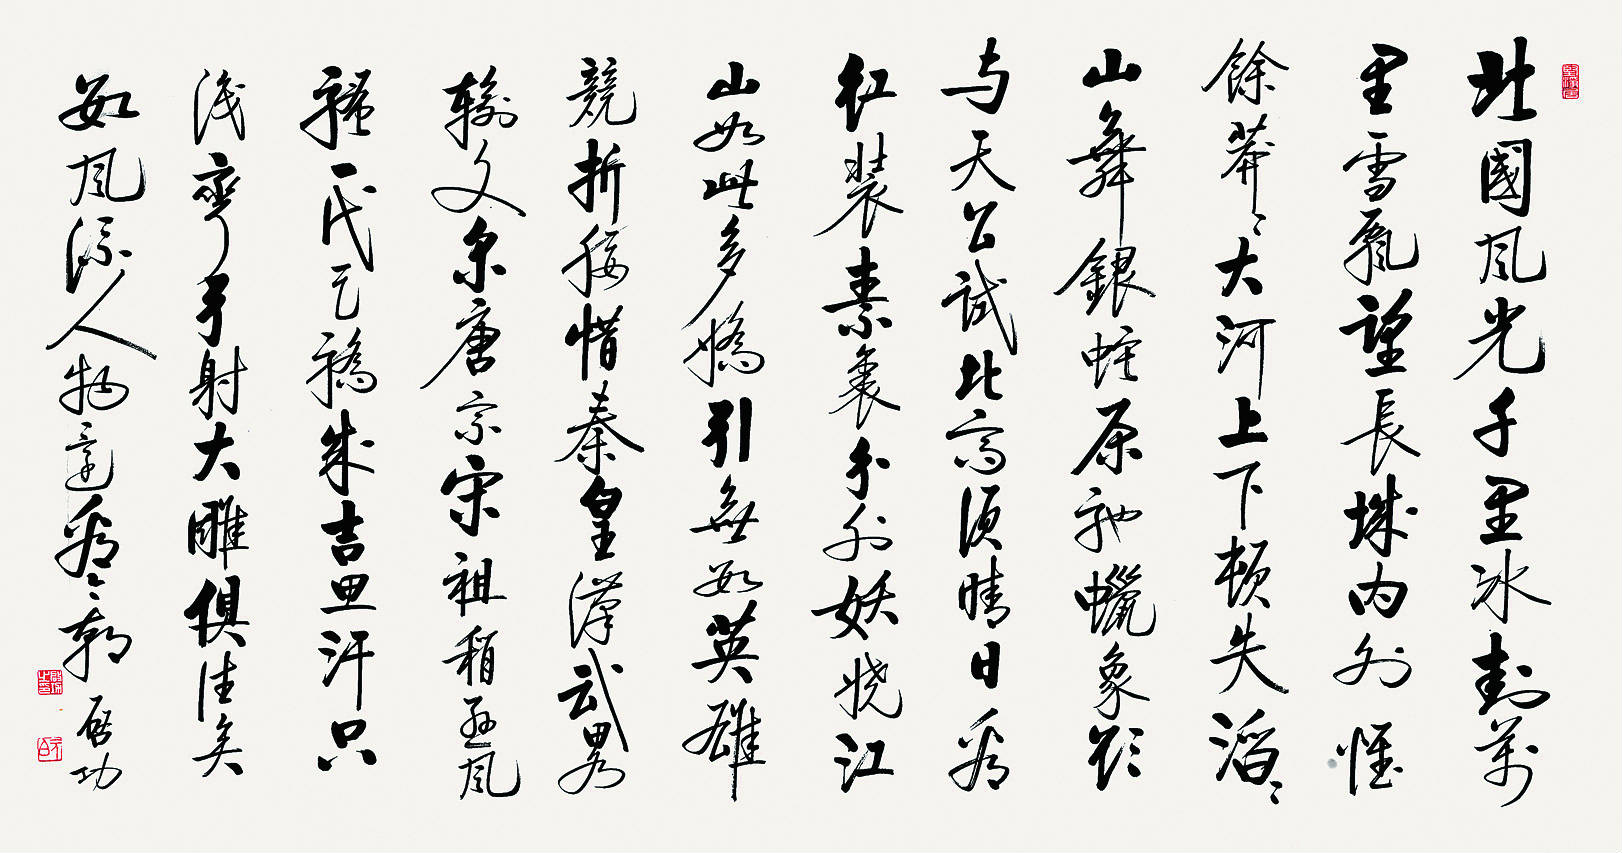 北國風光千里冰封萬
里雪飄望長城內外惟
餘莽〻大河上下頓失滔〻
山舞銀蛇原馳蠟象欲
与天公試比高須晴日看
紅裝素裹分外妖嬈江
山如此多嬌引無數英雄
競折腰惜秦皇漢武畧
輸文采唐宗宋祖稍遜風
騷一代天驕成吉思汗只
識彎弓射大雕俱往矣
數風流人物還看今朝 啟功